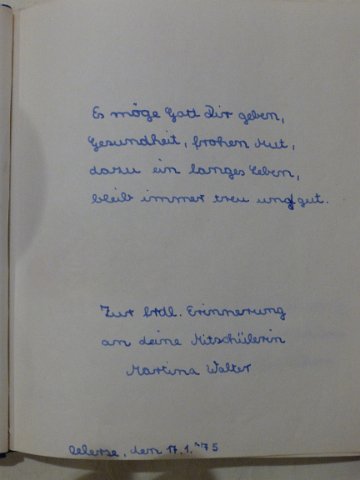 Es möge Gott Dir geben,
Gesundheit, frohen Mut,
dazu ein langes Leben,
bleib immer treu und gut.
Zur frdl. Erinnerung
an deine Mitschülerin
Martina Walter
den 17.1.75